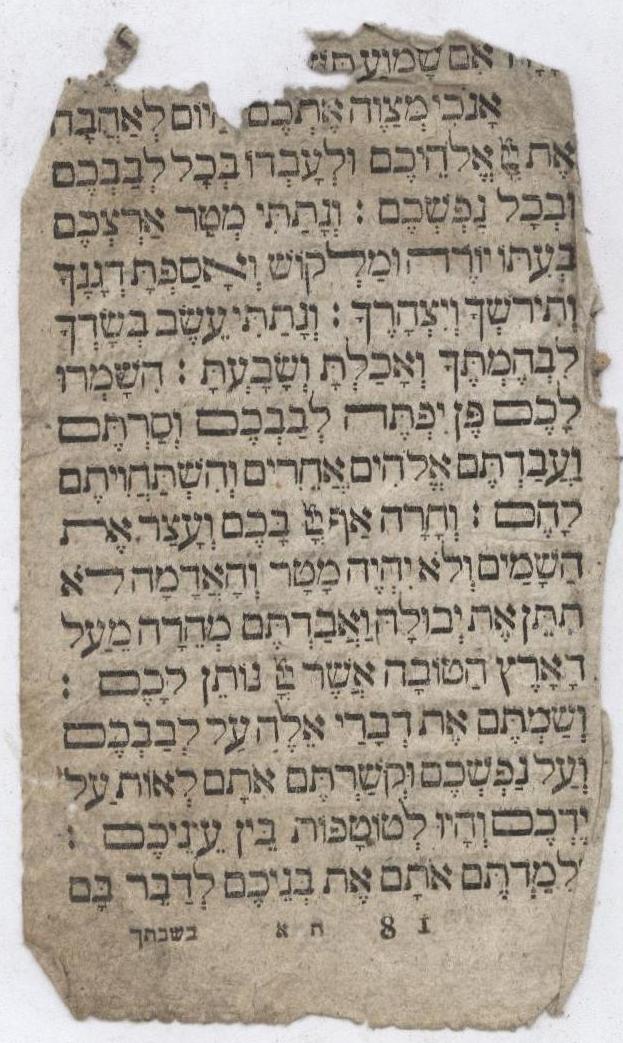 אִם שָׁמוֹעַ
אָנֹכִי מְצַוֶּה אֶתְכֶם לְאַהֲבָה
אֶת אֱלֹהֵיכֶם וּלְעָבְדוֹ בְּכָל לְבַבְכֶם
וּבְכָל נַפְשְׁכֶם : וְנָתַתִּי מְטַר אַרְצְכֶם
בְּעִתּוֹ יוֹרֶה וּמַלְקוֹשׁ וְאָסַפְתָּ דְגָנֶךָ
וְתִירֹשְׁךָ וְיִצְהָרֶךָ : וְנָתַתִּי עֵשֶׂב בְּשָׂדְךָ
לִבְהֶמְתֶּךָ וְאָכַלְתָּ וְשָׂבָעְתָּ : הִשָּׁמְרוּ
לָכֶם פֶּן יִפְתֶּה לְבַבְכֶם וְסַרְתֶּם
וַעֲבַדְתֶּם אֱלֹהִים אֲחֵרִים וְהִשְׁתַּחֲוִיתֶם
לָהֶם : וְחָרָה אַף בָּכֶם וְעָצַר אֶת
הַשָּׁמַיִם וְלֹא יִהְיֶה מָטָר וְהָאֲדָמָה לֹא
תִתֵּן אֶת יְבוּלָהּ וַאֲבַדְתֶּם מְהֵרָה מֵעַל
הָאָרֶץ הַטּוֹבָה אֲשֶׁר נוֹתֵן לָכֶם :
וְשַׂמְתֶּם אֶת דְּבָרַי אֵלֶּה עַל לְבַבְכֶם
וְעַל נַפְשְׁכֶם וּקְשַׁרְתֶּם אֹתָם לְאוֹת עַל
יֶדְכֶם וְהָיוּ לְטוֹטָפוֹת בֵּין עֵינֵיכֶם :
וְלִמַּדְתֶּם אֹתָם אֶת בְּנֵיכֶם לְדַבֵּר בָּם
81 ח א בשבתך